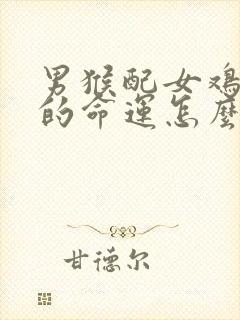 男猴配女鸡
的命运怎麽
甘德尔